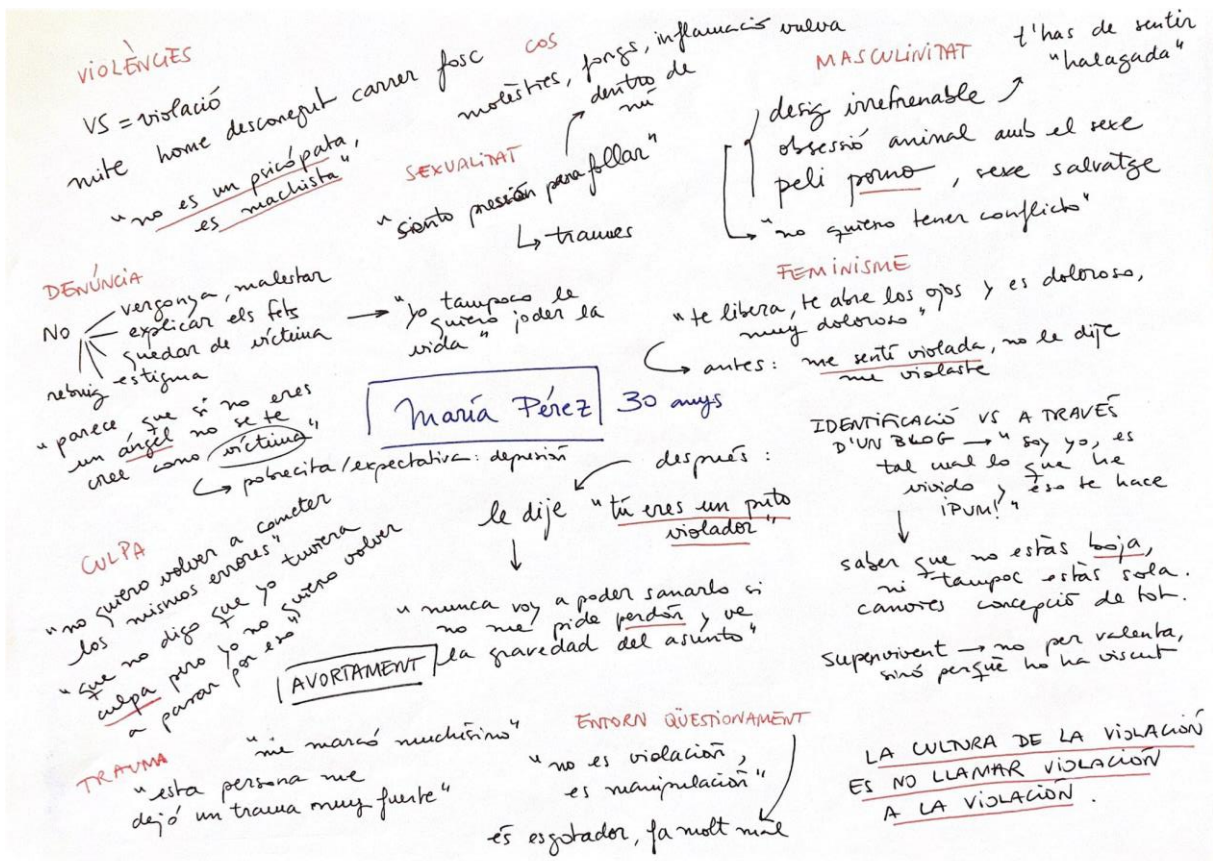 VIOLÈNCIES
VS = violació
mite home desconegut carrer fosc
"no es un psicópata,
es machista"
COS
molèsties, fongs, inflamació vulva
dentro de
mí
SEXUALITAT
"siento presión para follar"
↳ traumes
MASCULINITAT
t'has de sentir
"halagada"
desig irrefrenable
obsessió animal amb el sexe
peli porno, sexe salvatge
"no quiero tener conflicto"
DENÚNCIA
No
vergonya, malestar
explicar els fets
quedar de víctima
estigma
rebuig
→ "yo tampoco le
quiero joder la
vida"
"parece que si no eres
un ángel no se te
cree como víctima"
↳ pobrecita / expectativa: depresión
FEMINISME
"te libera, te abre los ojos y es doloroso,
muy doloroso"
antes: me sentí violada, no le dije
me violaste
María Pérez 30 anys
después:
le dije "tú eres un puto
violador"
↓
"nunca voy a poder sanarlo si
no me pide perdón y ve
la gravedad del asunto"
IDENTIFICACIÓ VS A TRAVÉS
D'UN BLOG → "soy yo, es
tal cual lo que he
vivido y eso te hace
¡PUM!"
↓
saber que no estàs boja,
ni tampoc estàs sola.
canvies concepció de tot.
Supervivent → no per valenta,
sinó perquè ho ha viscut
CULPA
"no quiero volver a cometer
los mismos errores"
"que no digo que yo tuviera
culpa pero yo no quiero volver
a pasar por eso"
AVORTAMENT
TRAUMA
"me marcó muchísimo"
"esta persona me
dejó un trauma muy fuerte"
ENTORN QÜESTIONAMENT
"no es violación,
es manipulación"
és esgotador, fa molt mal
LA CULTURA DE LA VIOLACIÓN
ES NO LLAMAR VIOLACIÓN
A LA VIOLACIÓN.